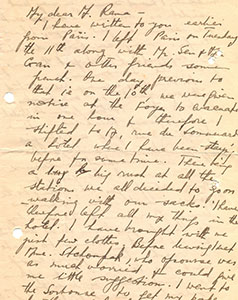 My dear Mr. Rama -
I have written to you earlier
from Paris. I left Paris on Tuesday
the 11th along with Mr. Sen & Mr.
& other friends some
French. One day previous to
that is on the 10th we were given
notice at the Foyer to evacuate
in one hour & therefore I
shifted to 17, rue du Sommerard
a hotel where I have been
before for some time. There being
a big rush at all the
stations we all decided to go on
walking with our sacks. I have
therefore left all my thing in the
hotel. I have brought with me
just few clothes. Before leaving I met
Mme. Stchoupak, who of course was
as much worried & could give
me little suggestion. I went to
the Sorbonne to get my